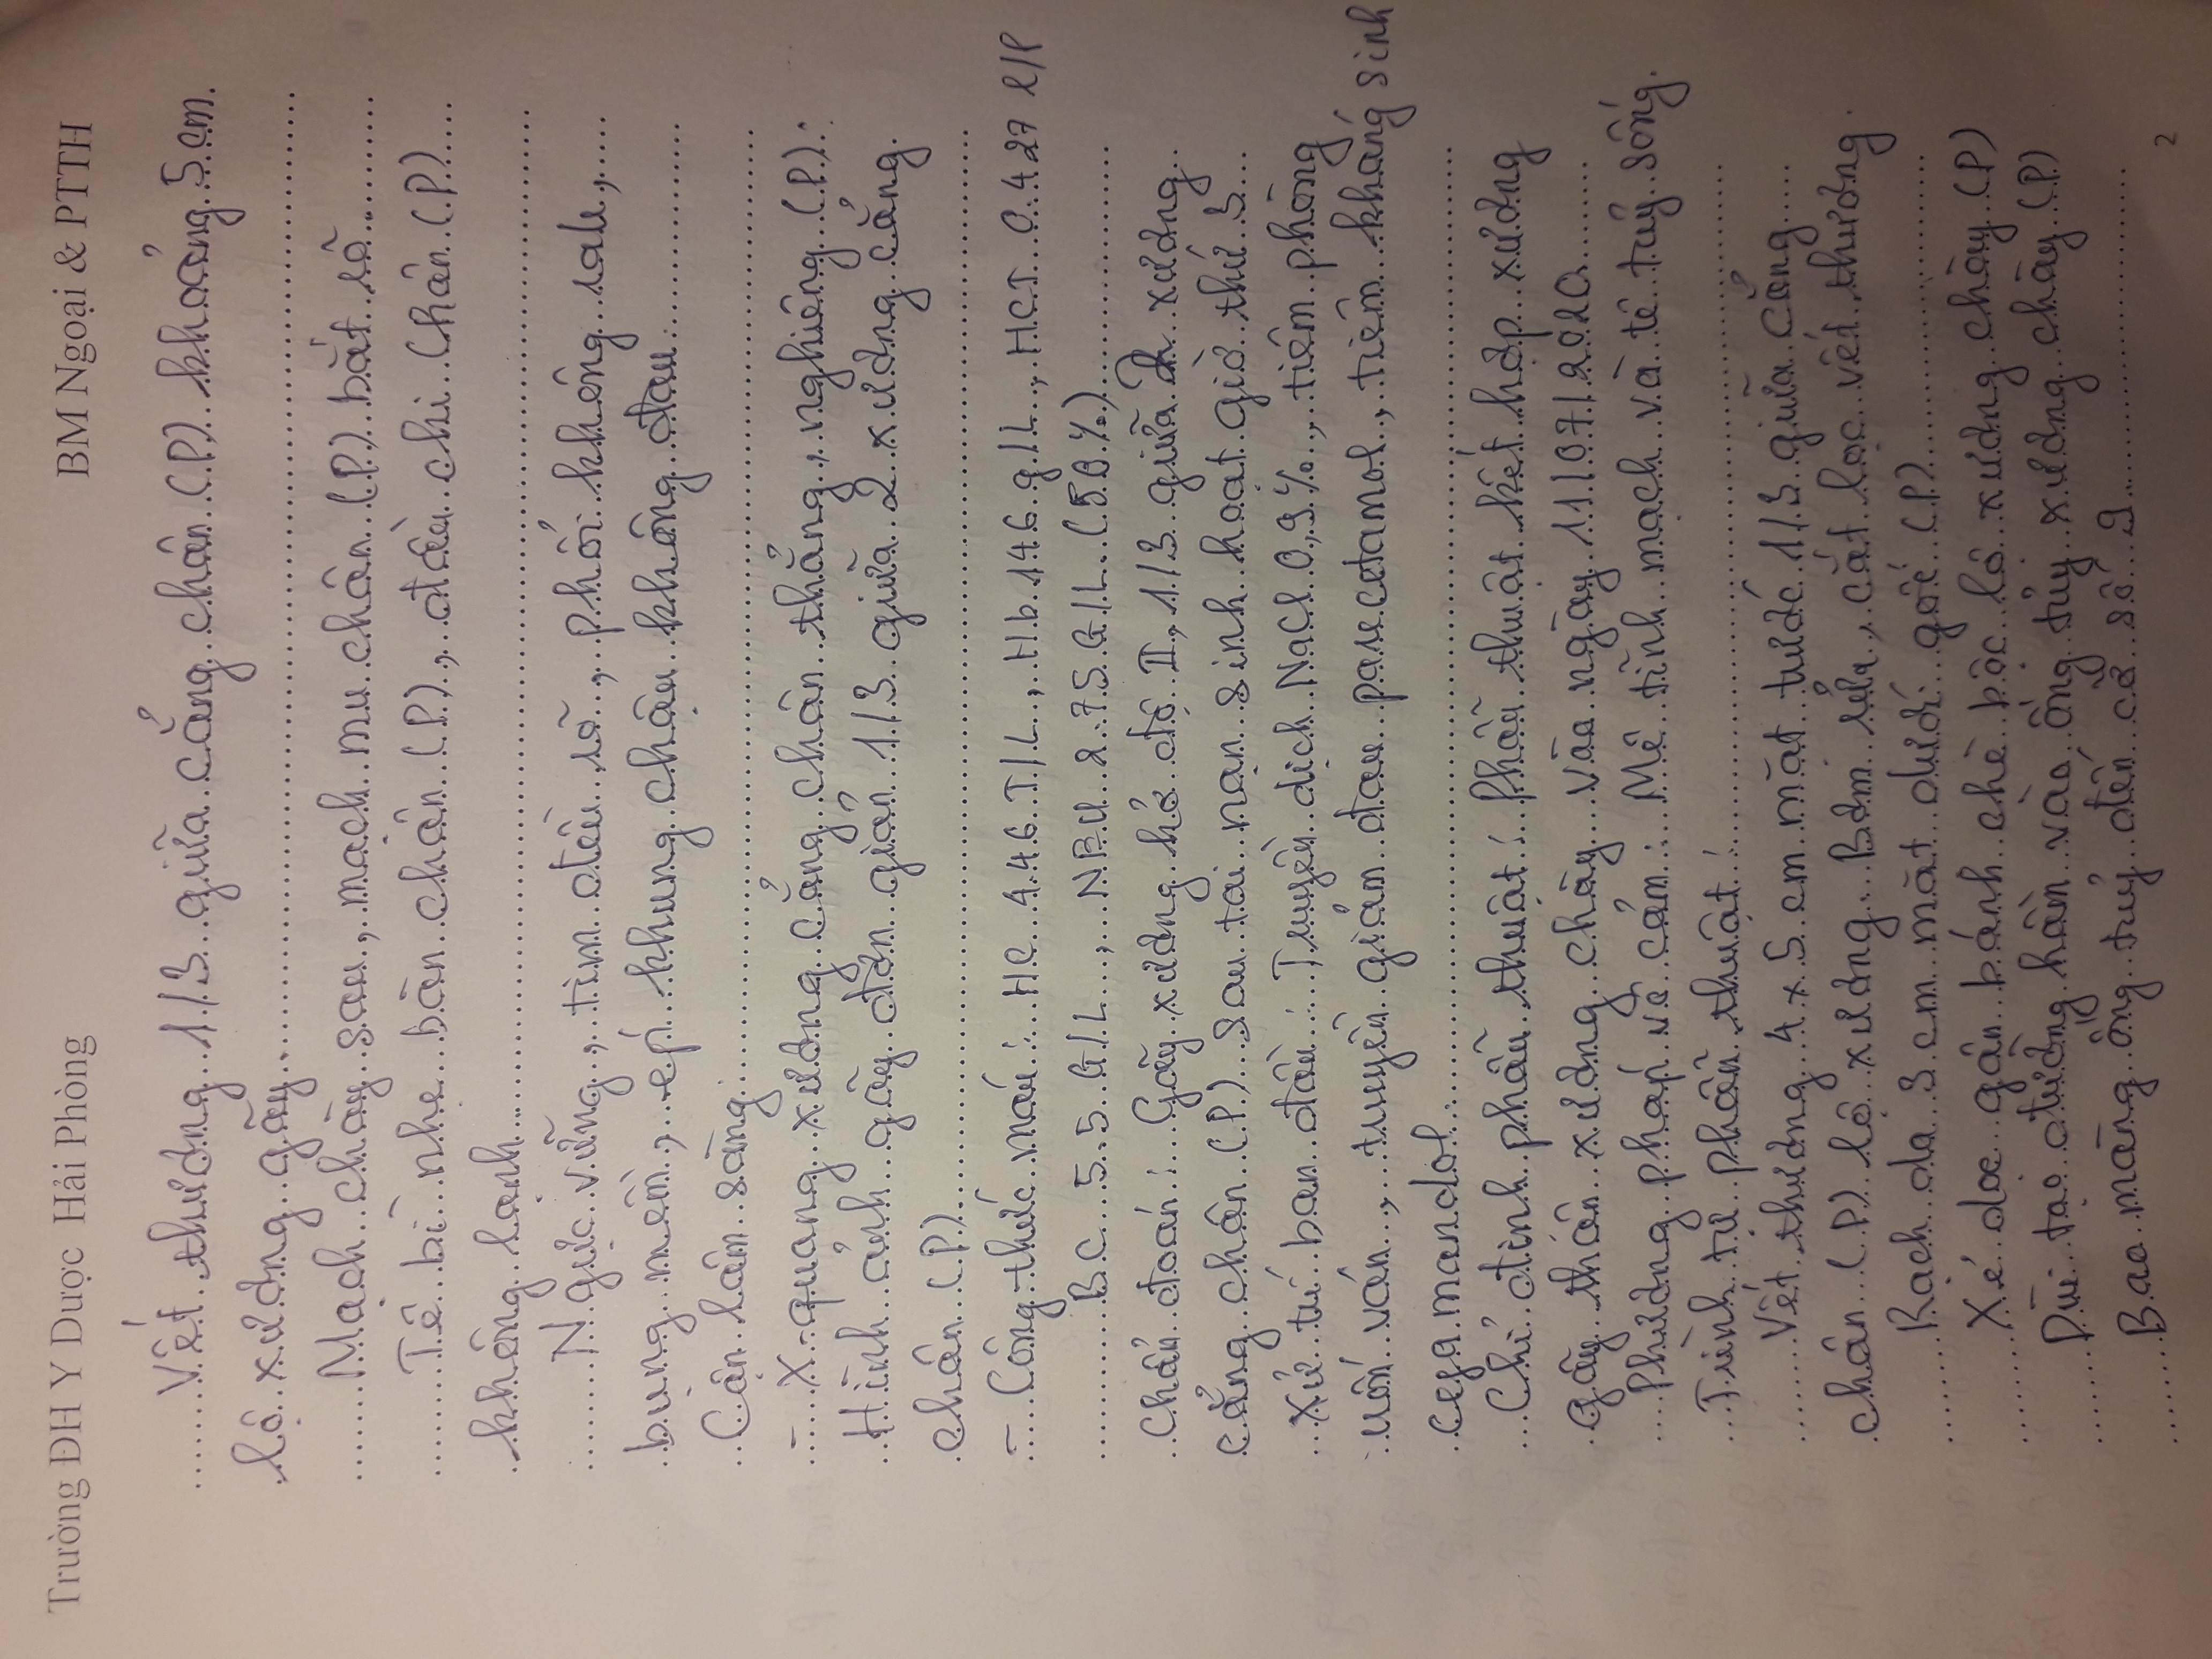 Trường ĐH Y Dược Hải Phòng
BM Ngoại & PTTH
Vết thương 1/3 giữa cẳng chân (P) khoảng 5 cm
lộ xương gãy
Mạch chày sau, mạch mu chân (P) bắt rõ
Tê bì nhẹ bàn chân (P), đầu chi chân (P)
không lạnh
Ngực vững, tim đều rõ, phổi không rale,
bụng mềm, ép khung chậu không đau
Cận lâm sàng:
- X-quang xương cẳng chân thẳng, nghiêng (P):
Hình ảnh gãy đơn giản 1/3 giữa 2 xương cẳng
chân (P)
- Công thức máu: HC 4.46 T/L, Hb 146 g/L, HCT 0.427 l/l
BC 5.5 G/L, NEU 2.75 G/L (50%)
Chẩn đoán: Gãy xương hở độ II, 1/3 giữa 2 xương
cẳng chân (P) sau tai nạn sinh hoạt giờ thứ 3
Xử trí ban đầu: Truyền dịch NaCl 0,9%, tiêm phòng
uốn ván, truyền giảm đau paracetamol, tiêm kháng sinh
cefamandol
Chỉ định phẫu thuật: Phẫu thuật kết hợp xương
gãy thân xương chày vào ngày 11/07/2020
Phương pháp vô cảm: Mê tĩnh mạch và tê tuỷ sống.
Trình tự phẫu thuật:
Vết thương 4 x 5 cm mặt trước 1/3 giữa cẳng
chân (P) lộ xương. Bơm rửa, cắt lọc vết thương
Rạch da 3 cm mặt dưới gối (P)
Xẻ dọc gân bánh chè bộc lộ xương chày (P)
Dùi tạo đường hầm vào ống tủy xương chày (P)
Bao màng ống tuỷ đến cỡ số 9
2